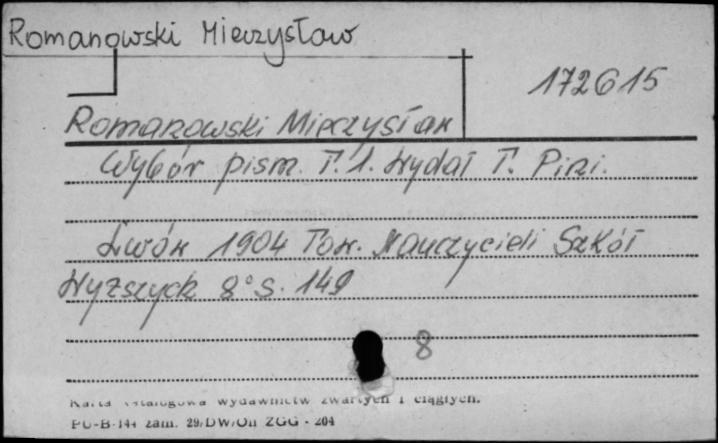 Romanowski Mieczysław
172615
Romanowski Mieczysław
Wybór pism. T. 1. Wydał T. Pini.
Lwów 1904 Tow. Nauczycieli Szkół
Wyższych 8° s. 149
8
Karta katalogowa wydawnictw zwartych i ciągłych.
PU-B-144 zam. 29/DW/On ZGG - 204